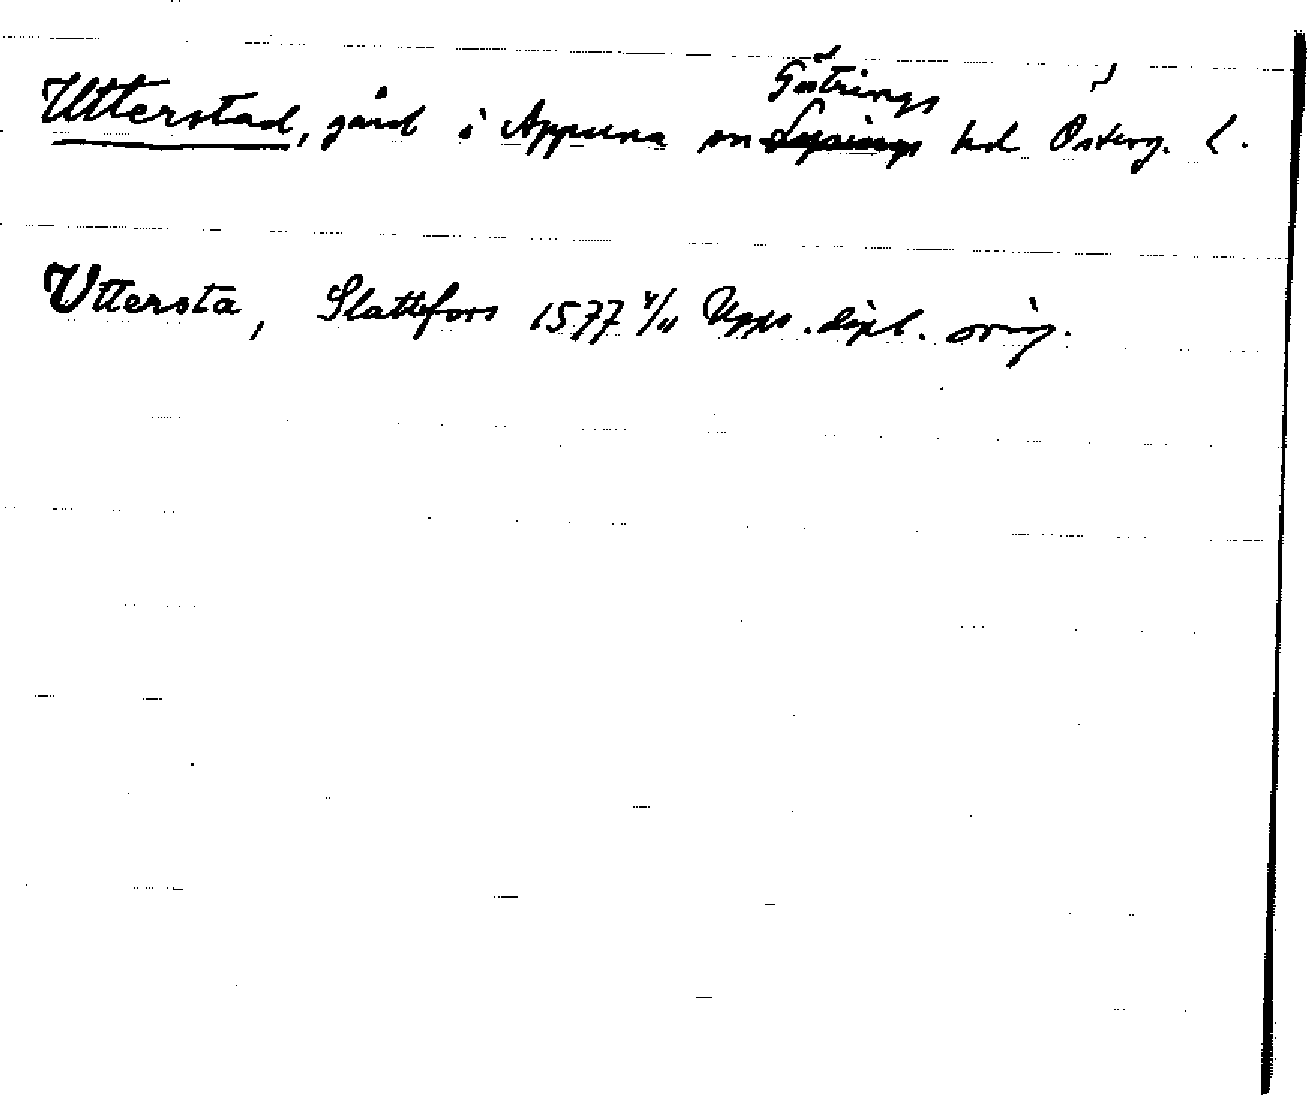 Götrings
Utterstad, gård i Appuna sn Lysings hd Österg. l.
Uttersta, Slattefors 1577 4/11 Upps. dipl. orig.